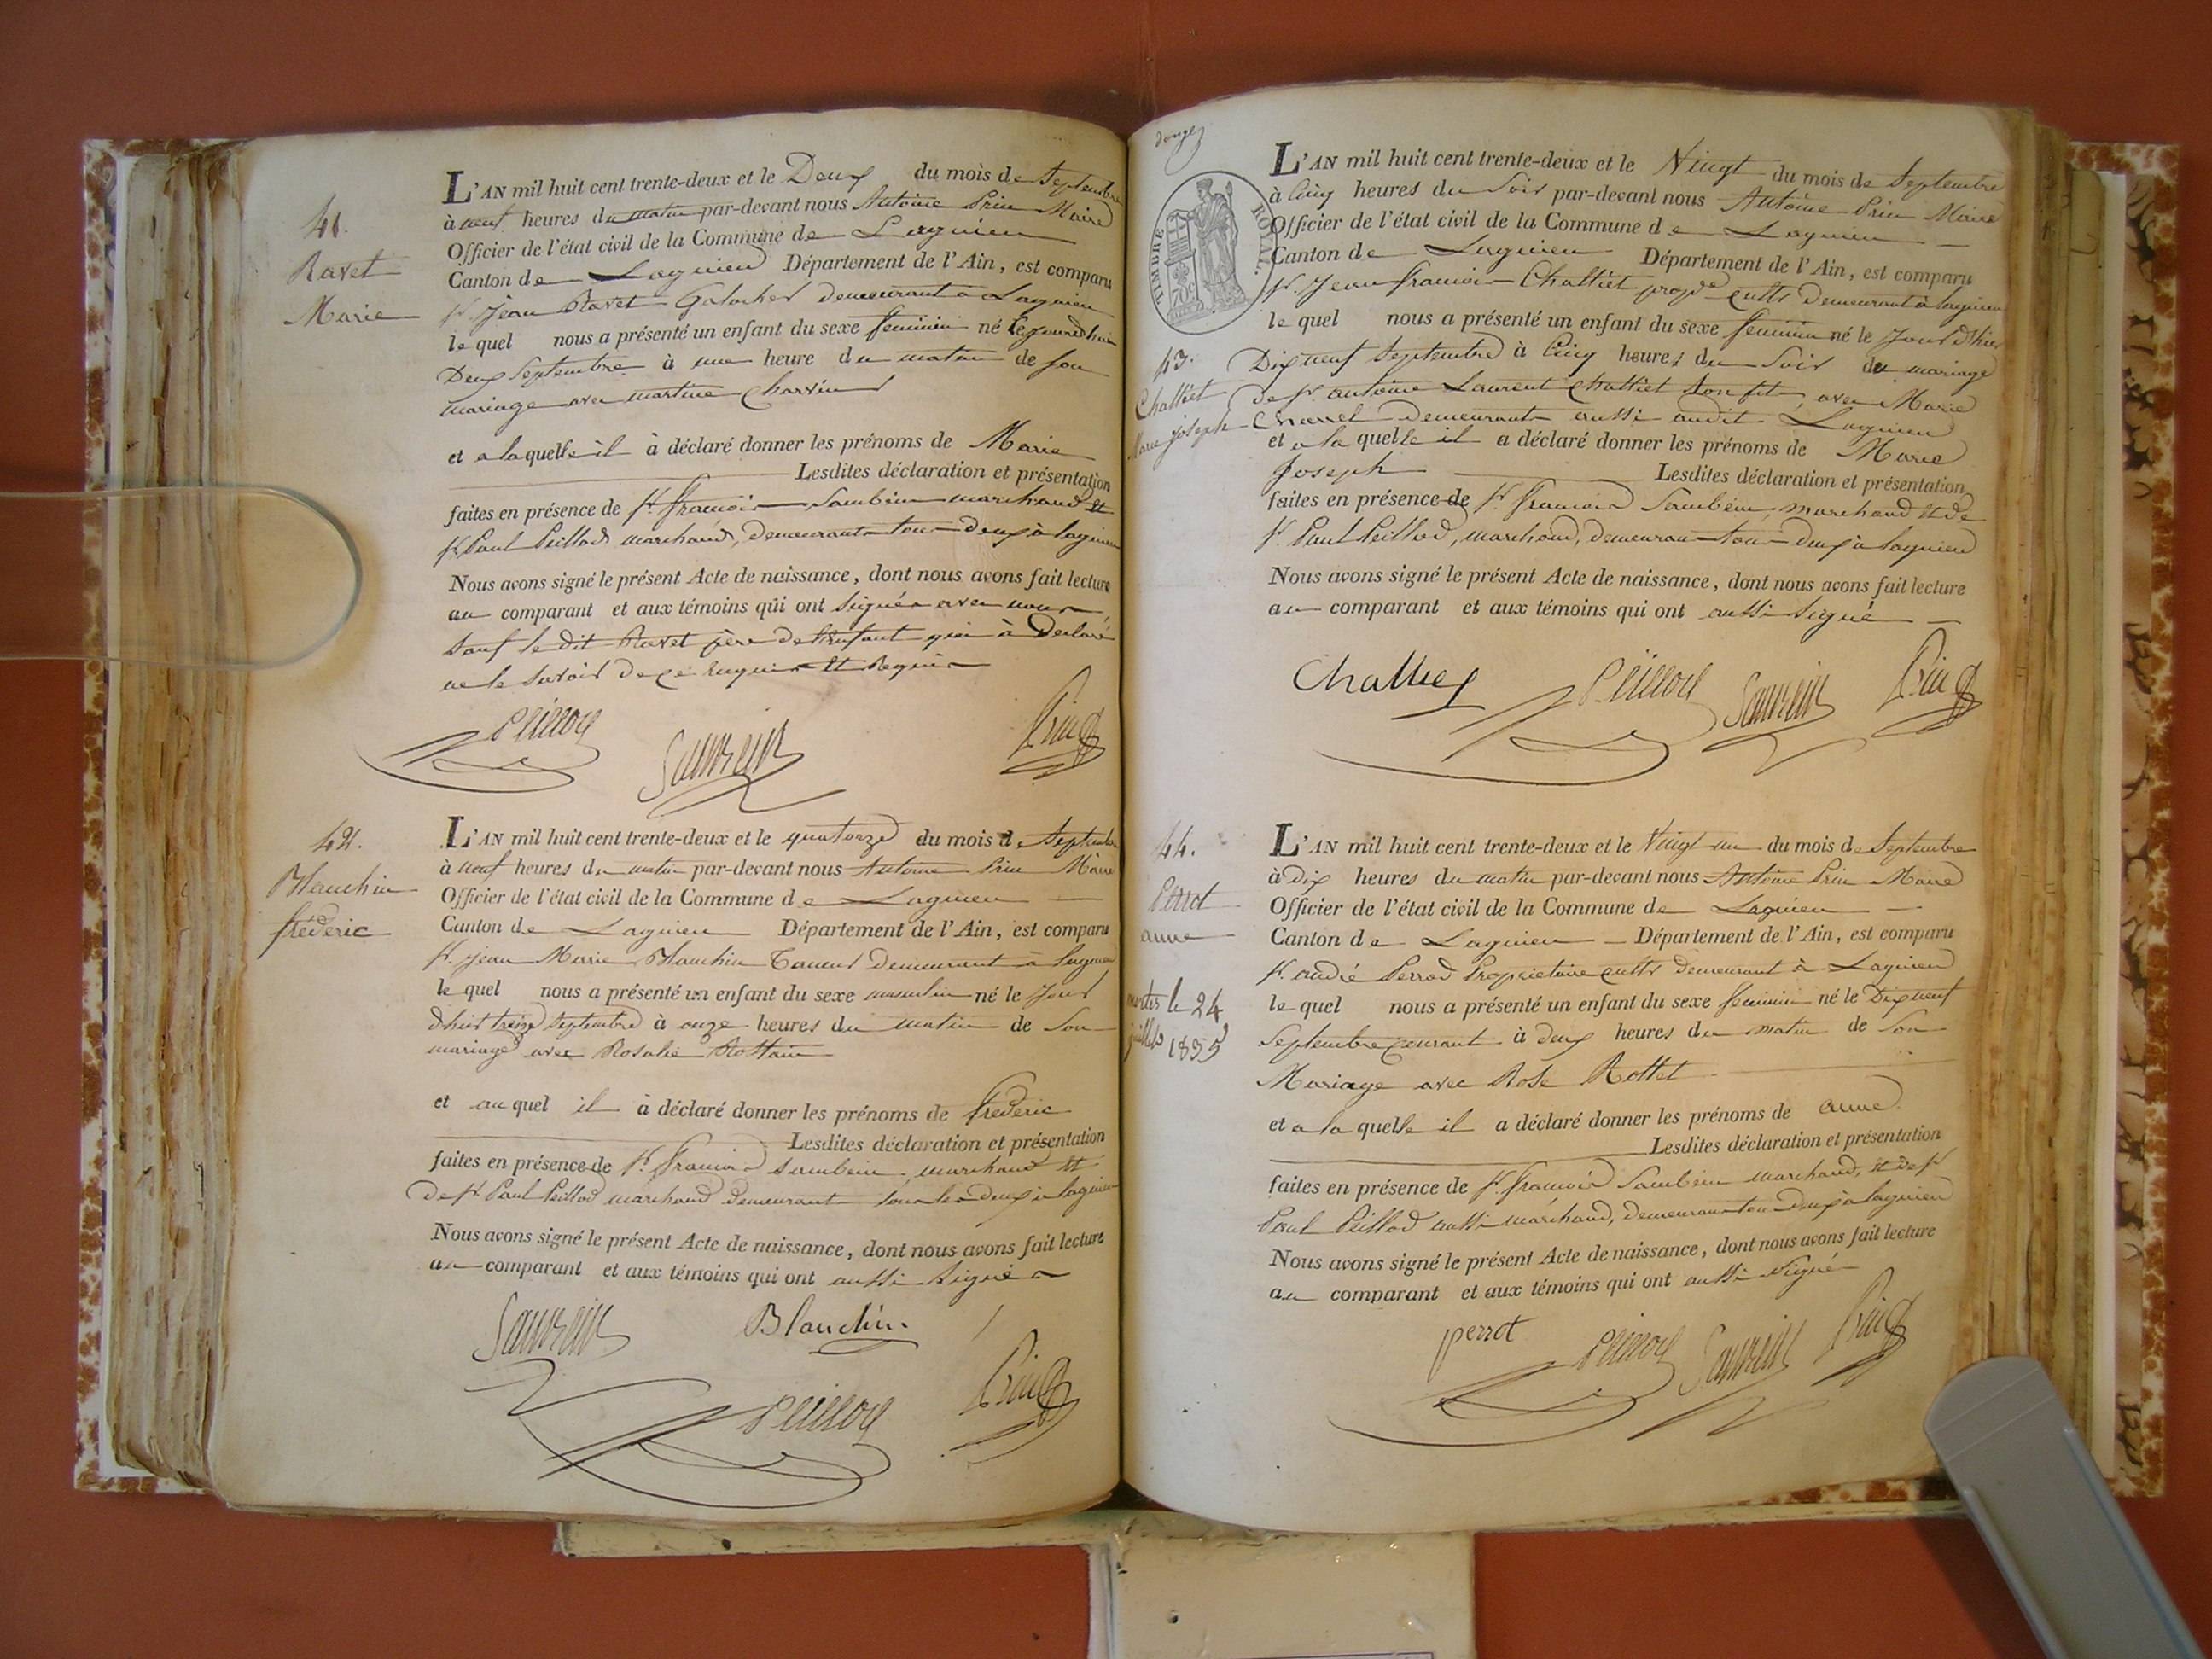 41.
Ravet
Marie
L'AN mil huit cent trente-deux et le Deux du mois de Septembre
à neuf heures du matin par-devant nous Antoine Prin Maire
Officier de l'état civil de la Commune de Lagnieu
Canton de Lagnieu Département de l'Ain, est comparu
sr. Jean Ravet Galocher demeurant à Lagnieu
le quel nous a présenté un enfant du sexe feminin né le jourdhui
Deux Septembre à une heure du matin de son
mariage avec martine Charvin
et a laquelle il à déclaré donner les prénoms de Marie
Lesdites déclaration et présentation
faites en présence de sr. François marchand et
sr. Paul Peillod marchand, demeurant tous deux à lagnieu
Nous avons signé le présent Acte de naissance, dont nous avons fait lecture
au comparant et aux témoins qui ont signés avec nous
sauf le dit Ravet père de l'enfant qui à déclaré
ne le savoir de ce enquis et Requis
Peillod
Prin
42.
Blanchin
fréderic
L'AN mil huit cent trente-deux et le quatorze du mois de Septembre
à neuf heures du matin par-devant nous Antoine Prin Maire
Officier de l'état civil de la Commune de Lagnieu
Canton de Lagnieu Département de l'Ain, est comparu
sr. Jean Marie Blanchin Taneur demeurant à lagnieu
le quel nous a présenté un enfant du sexe masculin né le jour
dhier treize septembre à onze heures du matin de Son
mariage avec Rosalie
et au quel il à déclaré donner les prénoms de frederic
Lesdites déclaration et présentation
faites en présence de sr. François marchand et
de sr. Paul Peillod marchand demeurant tous les deux à lagnieu
Nous avons signé le présent Acte de naissance, dont nous avons fait lecture
au comparant et aux témoins qui ont aussi signé
Blanchin
Peillod
Prin
douze
TIMBRE ROYAL
70c
43.
Challiet
Marie joseph
L'AN mil huit cent trente-deux et le Vingt du mois de Septembre
à Cinq heures du Soir par-devant nous Antoine Prin Maire
Officier de l'état civil de la Commune de Lagnieu
Canton de Lagnieu Département de l'Ain, est comparu
sr. Jean françois Challiet propre cultr Demeurant à lagnieu
le quel nous a présenté un enfant du sexe feminin né le jour d'hier
Dixneuf Septembre à Cinq heures du Soir du mariage
de sr. antoine Laurent Challiet Son fils, avec Marie
Charrel demeurant aussi audit Lagnieu
et a la quelle il a déclaré donner les prénoms de Marie
Joseph
Lesdites déclaration et présentation
faites en présence de sr. François marchand et de
sr. Paul Peillod, marchand, demeurant tous deux à lagnieu
Nous avons signé le présent Acte de naissance, dont nous avons fait lecture
au comparant et aux témoins qui ont aussi signé
Peillod
Prin
44.
Perrot
anne
L'AN mil huit cent trente-deux et le Vingt un du mois de Septembre
à dix heures du matin par-devant nous Antoine Prin Maire
Officier de l'état civil de la Commune de Lagnieu
Canton de Lagnieu Département de l'Ain, est comparu
sr. andré Perrod Proprietaire cultr demeurant à Lagnieu
le quel nous a présenté un enfant du sexe feminin né le Dixneuf
Septembre courant à deux heures du matin de Son
Mariage avec Rose Rottet
et a la quelle il a déclaré donner les prénoms de anne
Lesdites déclaration et présentation
faites en présence de sr. François marchand, et de sr
Paul Peillod aussi marchand, demeurant tous deux à lagnieu
Nous avons signé le présent Acte de naissance, dont nous avons fait lecture
au comparant et aux témoins qui ont aussi signé
le 24
perrot
Peillod
Prin